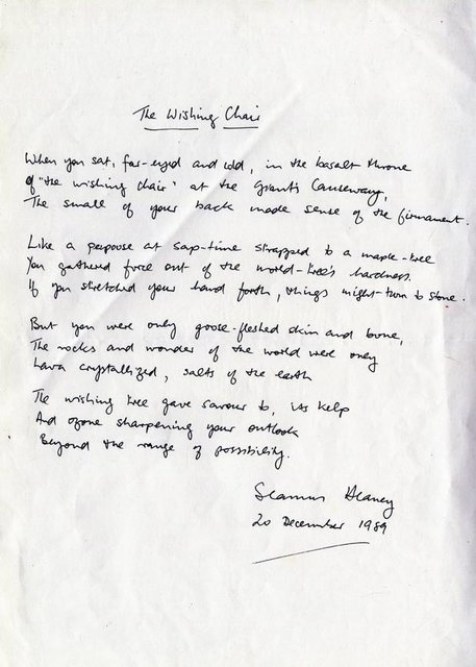 The Wishing Chair
When you sat, far-eyed and cold, in the basalt throne
Of "the wishing chair" at the Giant's Causeway,
The small of your back made sense of the firmament.
Like a papoose at sap-time strapped to a maple-tree
You gathered force out of the world-tree's hardness.
If you stretched your hand forth, things might turn to stone.
But you were only goose-fleshed skin and bone,
The rocks and wonder of the world were only
Lava crystallized, salts of the earth
The wishing tree gave savour to, its kelp
And ozone sharpening your outlook
Beyond the range of possibility.
Seamus Heaney
20 December 1989